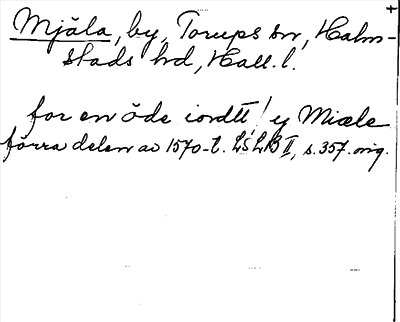 Mjäla, by, Torups sn, Halm-
stads hd, Hall. l.
for en öde iordtt! y Miæle
förra delen av 1570-t. LSLB II, s. 357. orig.